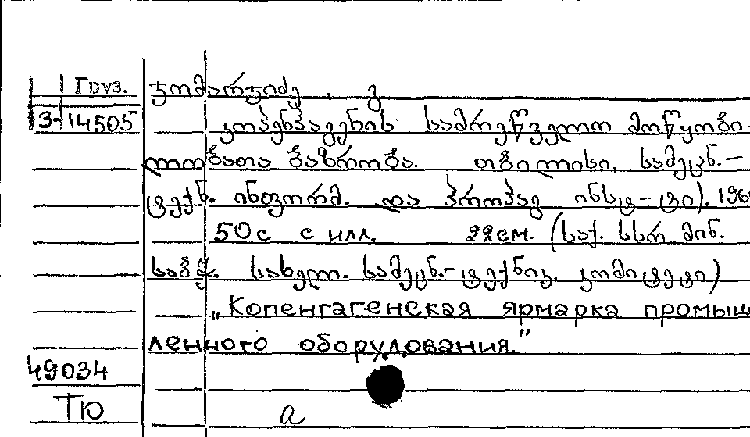 Груз. ჯომარჯიძე. გ
3-14505 კოპენჰაგენის სამრეწველო მოწყობი-
ლობათა ბაზრობა. თბილისი, სამეცნ.-
ტექნ. ინფორმ. და პროპაგ ინსტ-ტი). 196
50с с илл. 22см. (საქ. სსრ მინ.
საბჭ. სახელ. სამეცნ.-ტექნიკ. კომიტეტი)
„Копенгагенская ярмарка промыш
ленного оборудования."
49034
ТЮ а